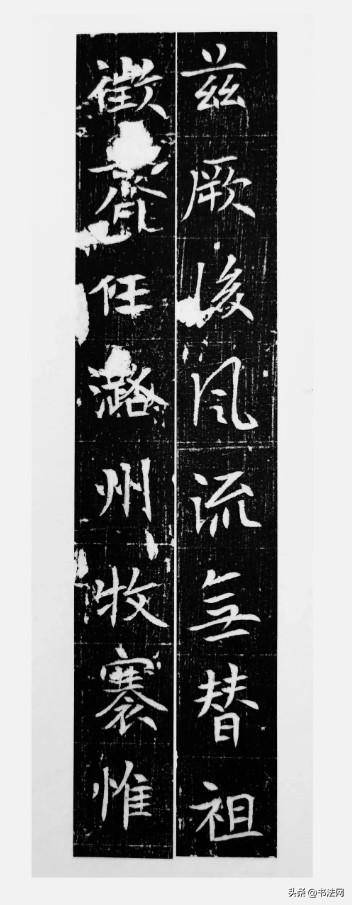 兹厥後風流無替祖
徵齊任潞州牧褰惟
头条 @书法网